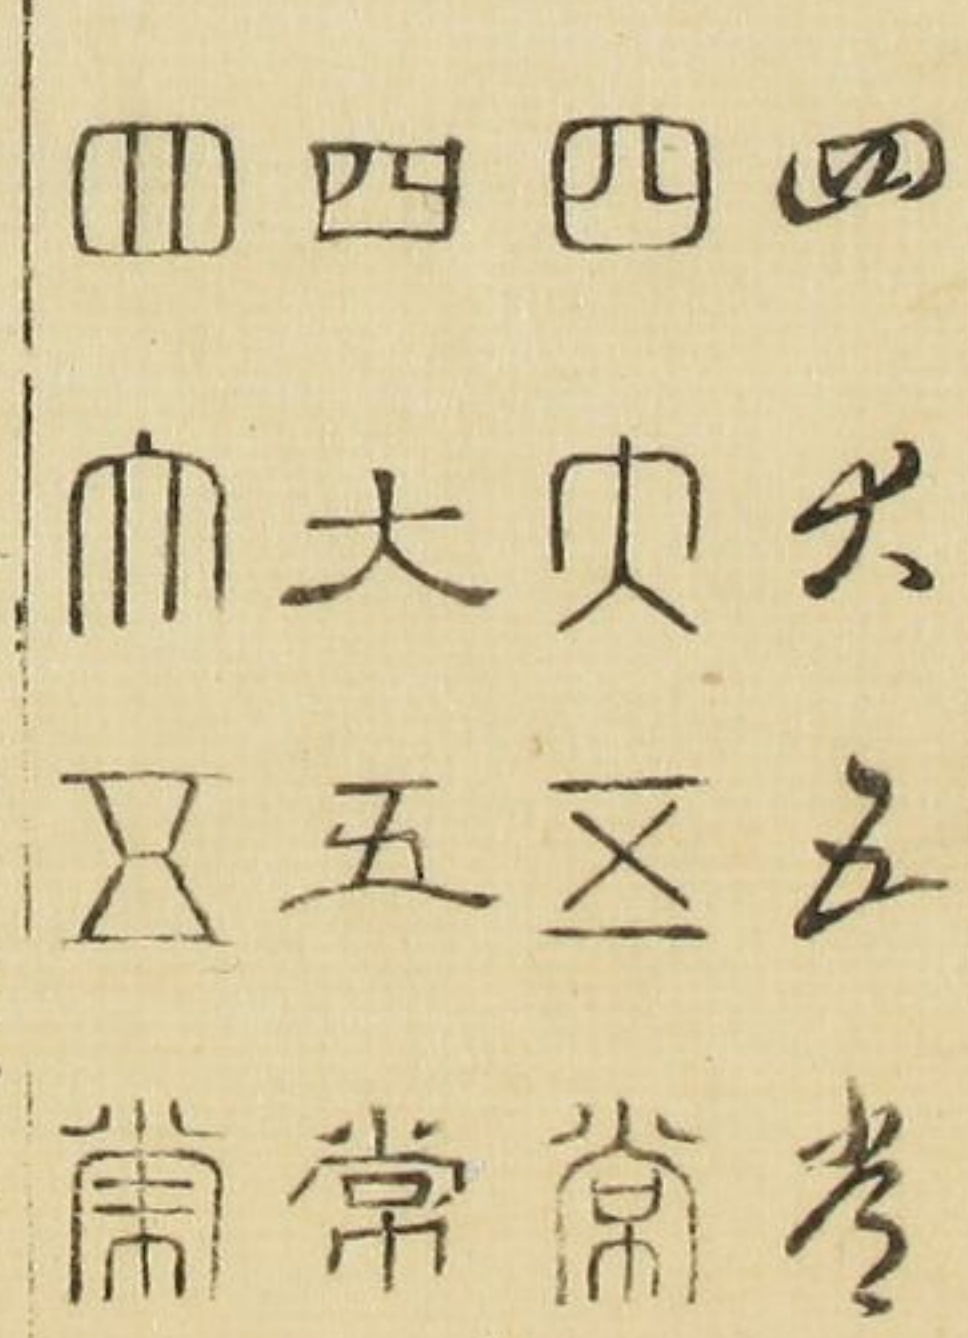 四大五常
四大五常
四大五常
四大五常